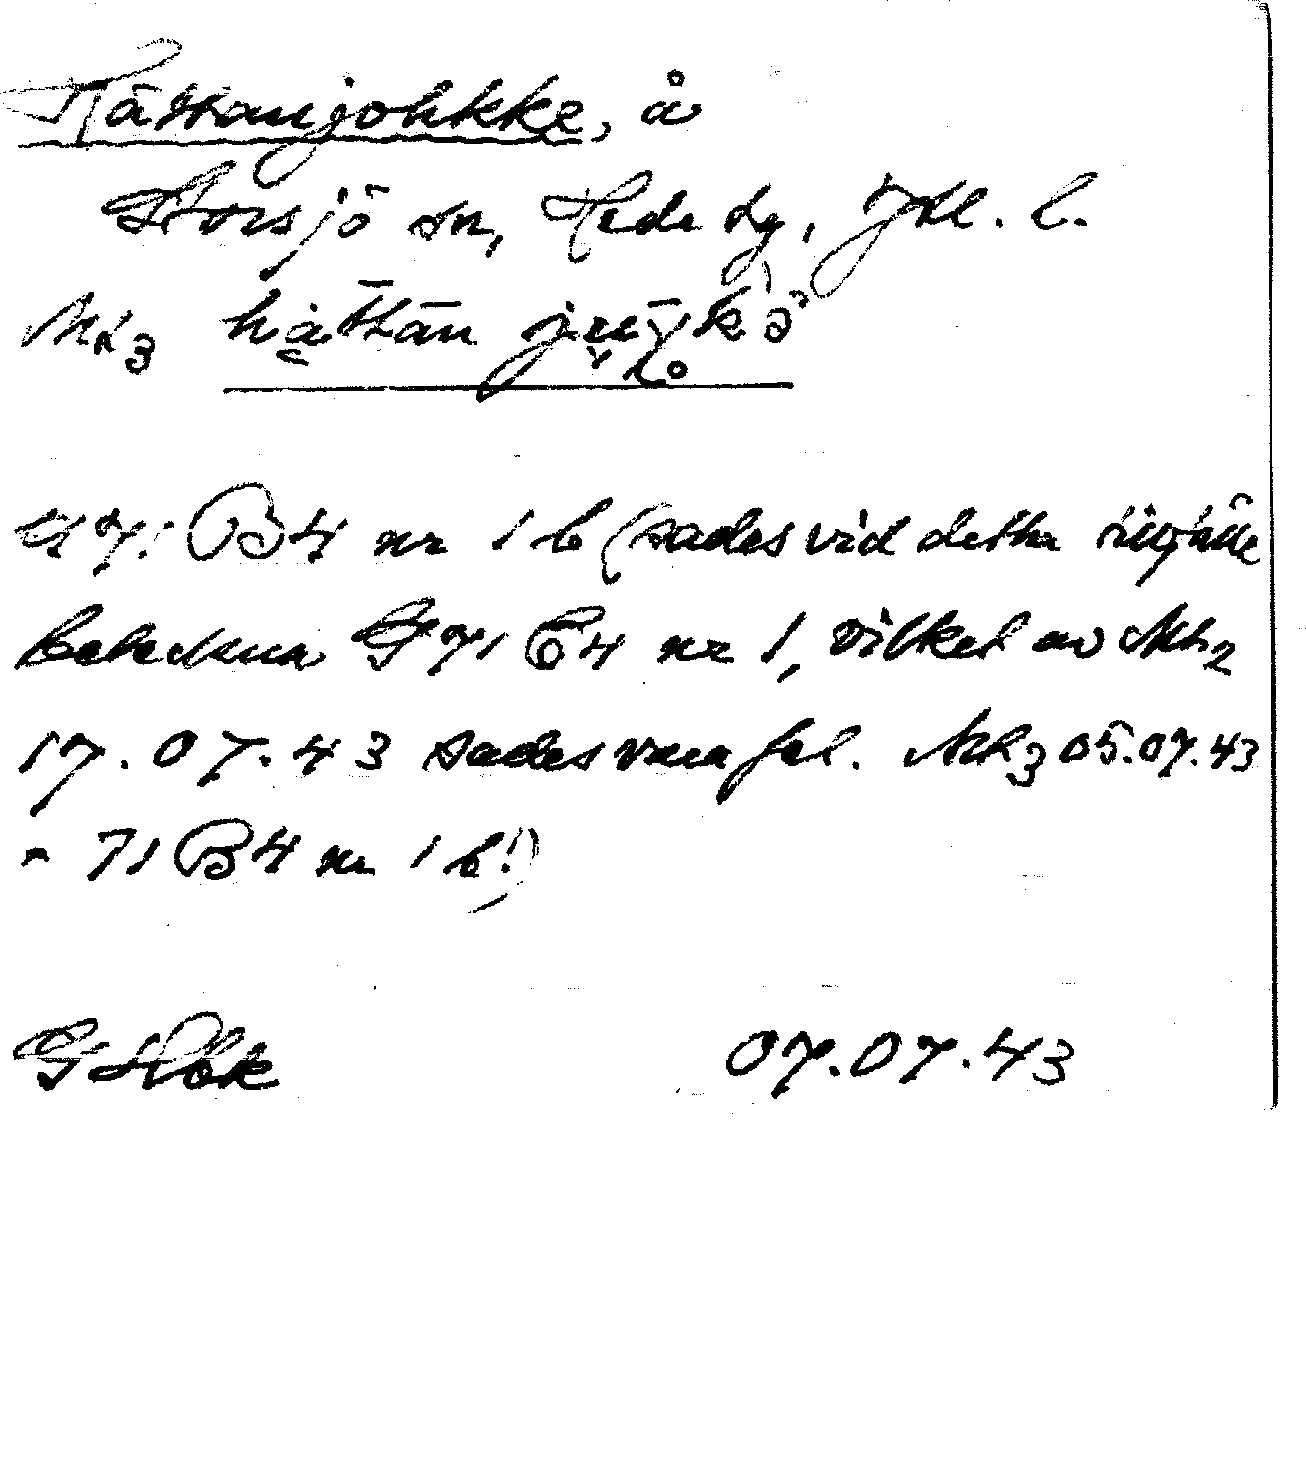 Håttanjohkke, å
Storsjö sn, Hede tg, Jtl. l.
Mh3 håttān
47: B4 nr 1 b (sades vid detta tillfälle
beteckna 71 C4 nr 1, vilket av Mh2
17.07.43 sades vara fel. Mh3 05.07.43
= 71 B4 nr 1 b!)
07.07.43